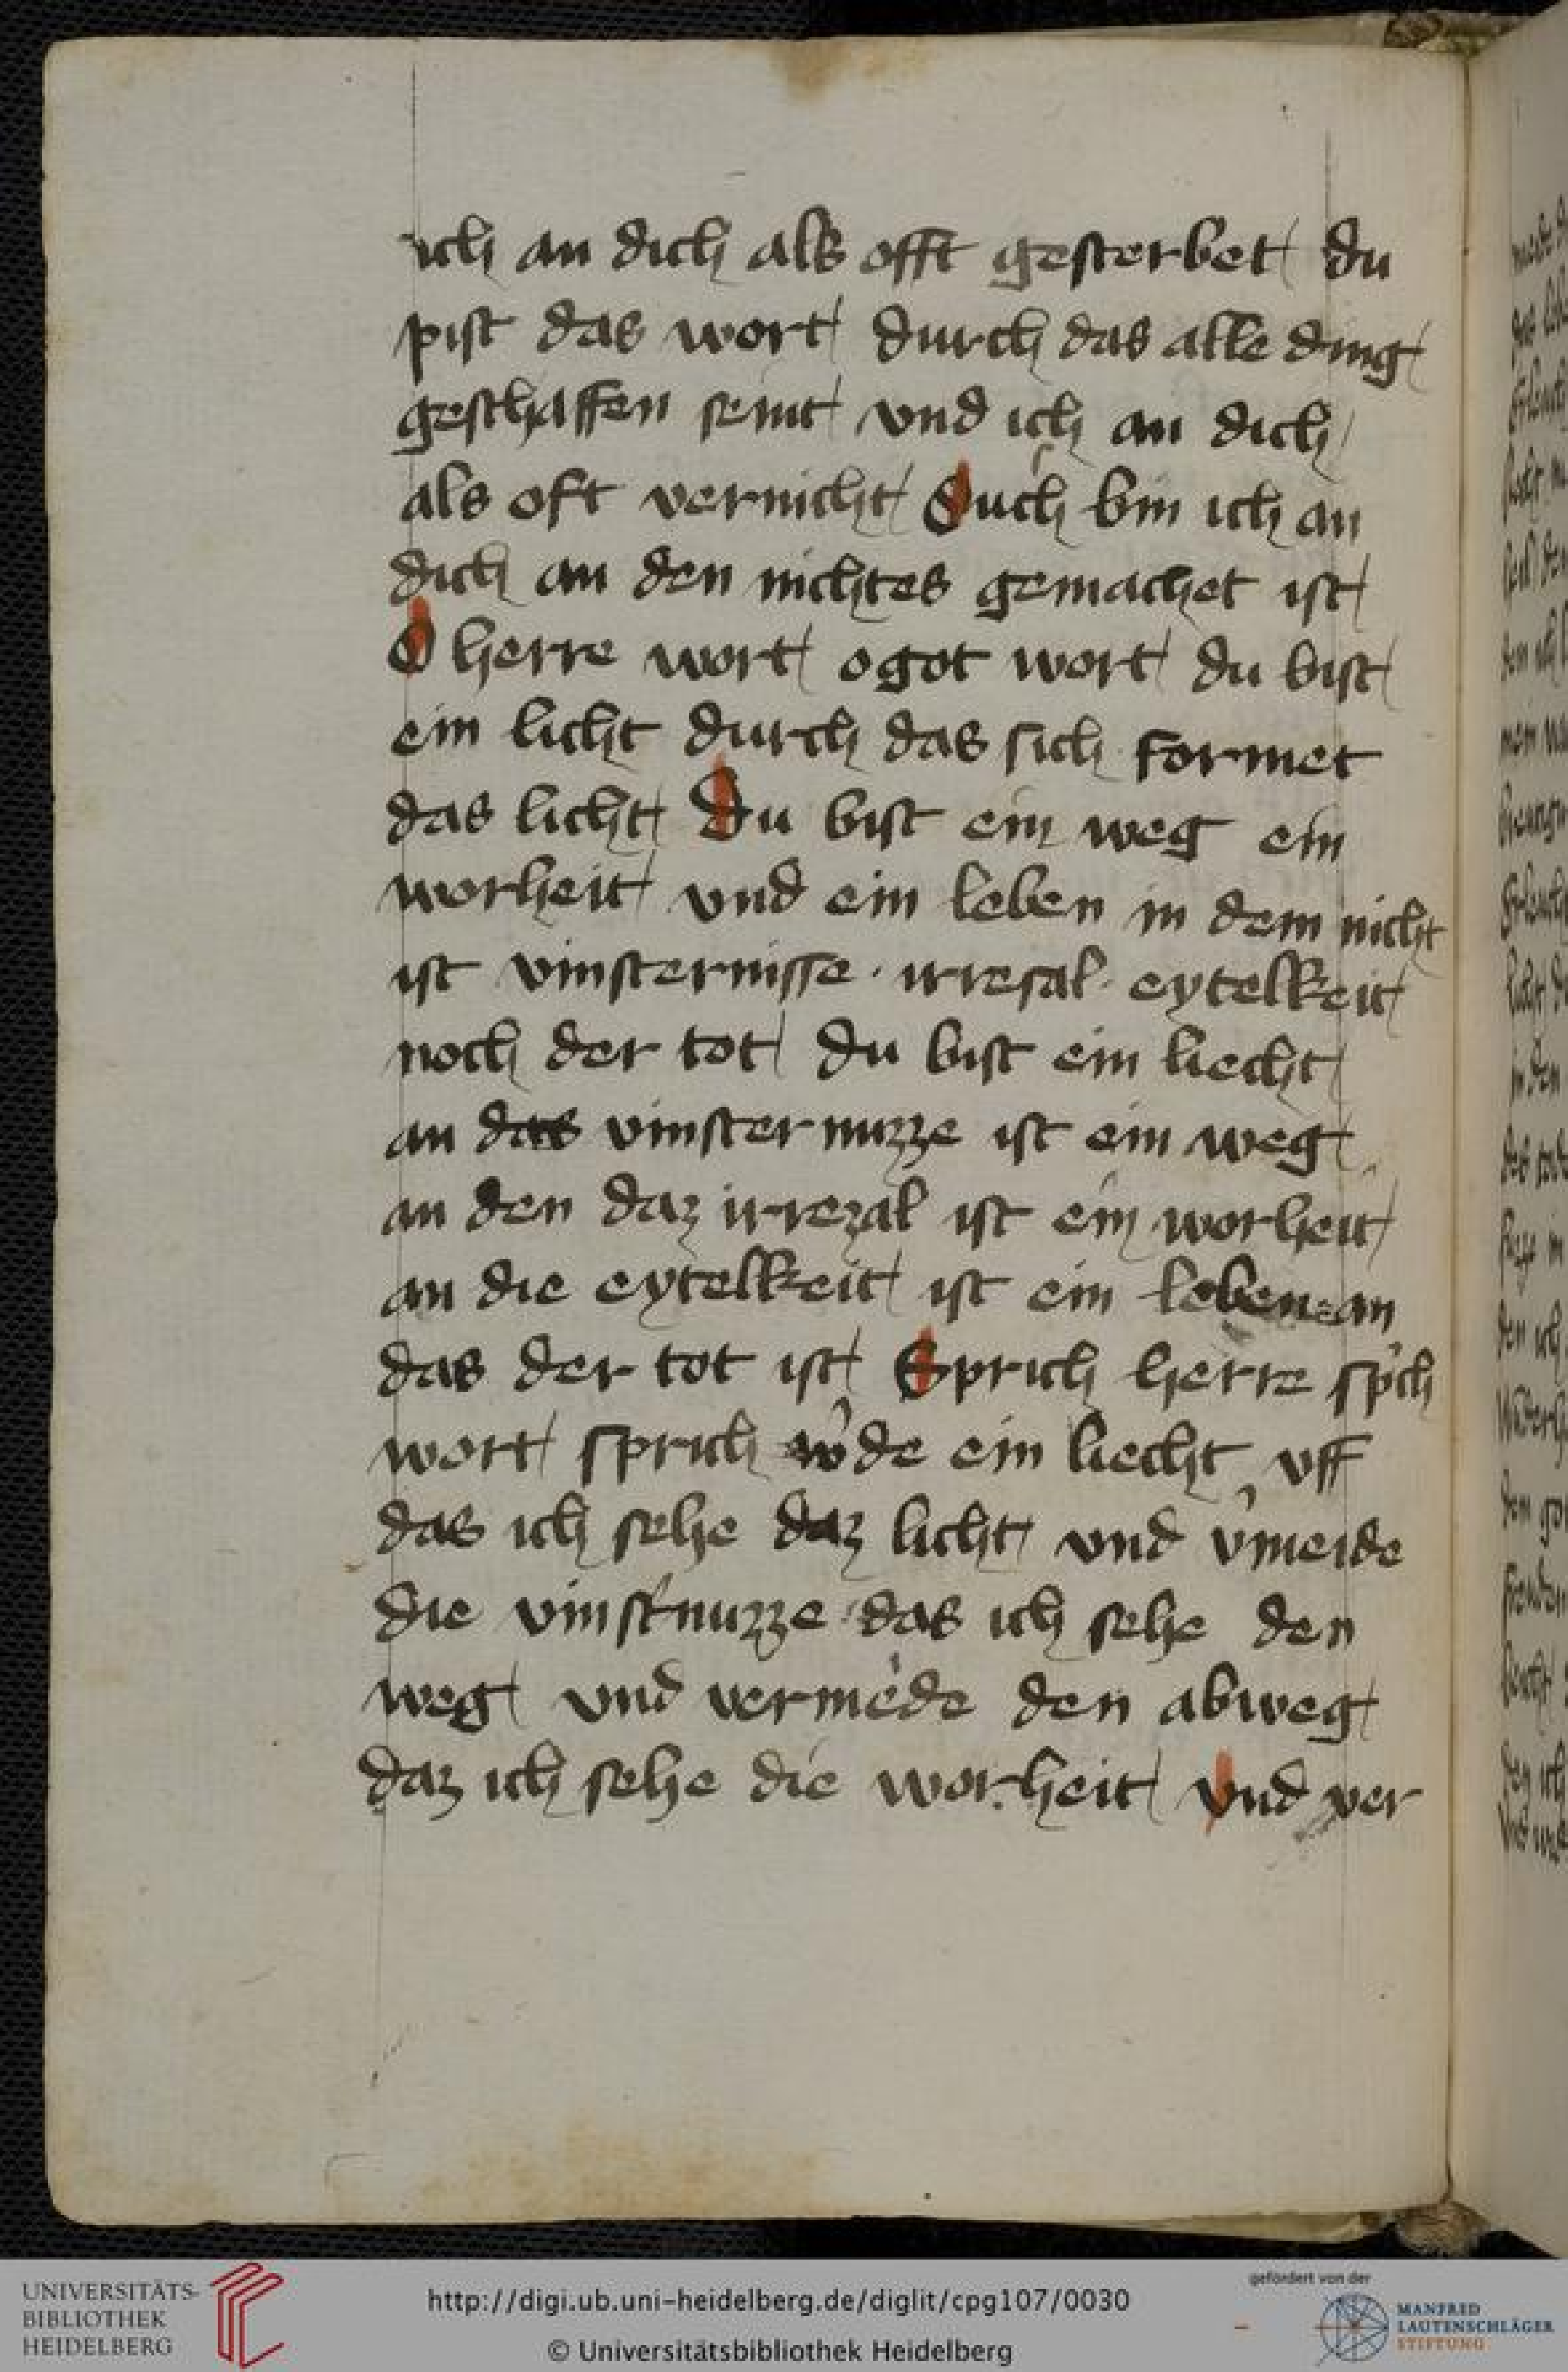 ich an dich als offt gesterbet du
pist das wort durch das alle ding
geschaffen seint vnd ich an dich
als oft vernicht Auch bin ich an
dich an den nichtes gemachet ist
O herre wort ogot wort du bist
ein licht durch das sich formet
das licht Du bist ein weg ein
worheit vnd ein leben in dem nicht
ist vinsternisse · irresal · eytelkeit
noch der tot du bist ein liecht
an das vinsternuzze ist ein weg
an den daz irrezal ist ein worheit
an die eytelkeit ist ein leben an
das der tot ist Sprich herre sp'ch
wort sprich w'de ein liecht vff
das ich sehe daz licht vnd v'meide
die vinst'nuzze · das ich sehe den
weg vnd vermede den abweg
daz ich sehe die worheit vnd ver
UNIVERSITÄTS-
BIBLIOTHEK
HEIDELBERG
http://digi.ub.uni-heidelberg.de/diglit/cpg107/0030
© Universitätsbibliothek Heidelberg
gefördert von der
MANFRED
LAUTENSCHLÄGER
STIFTUNG